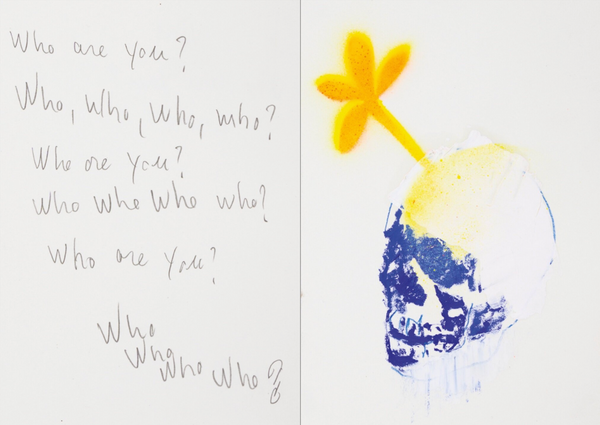 Who are you?
Who, Who, Who, who?
Who are you?
Who Who Who who?
Who are you?
Who
Who
Who Who?